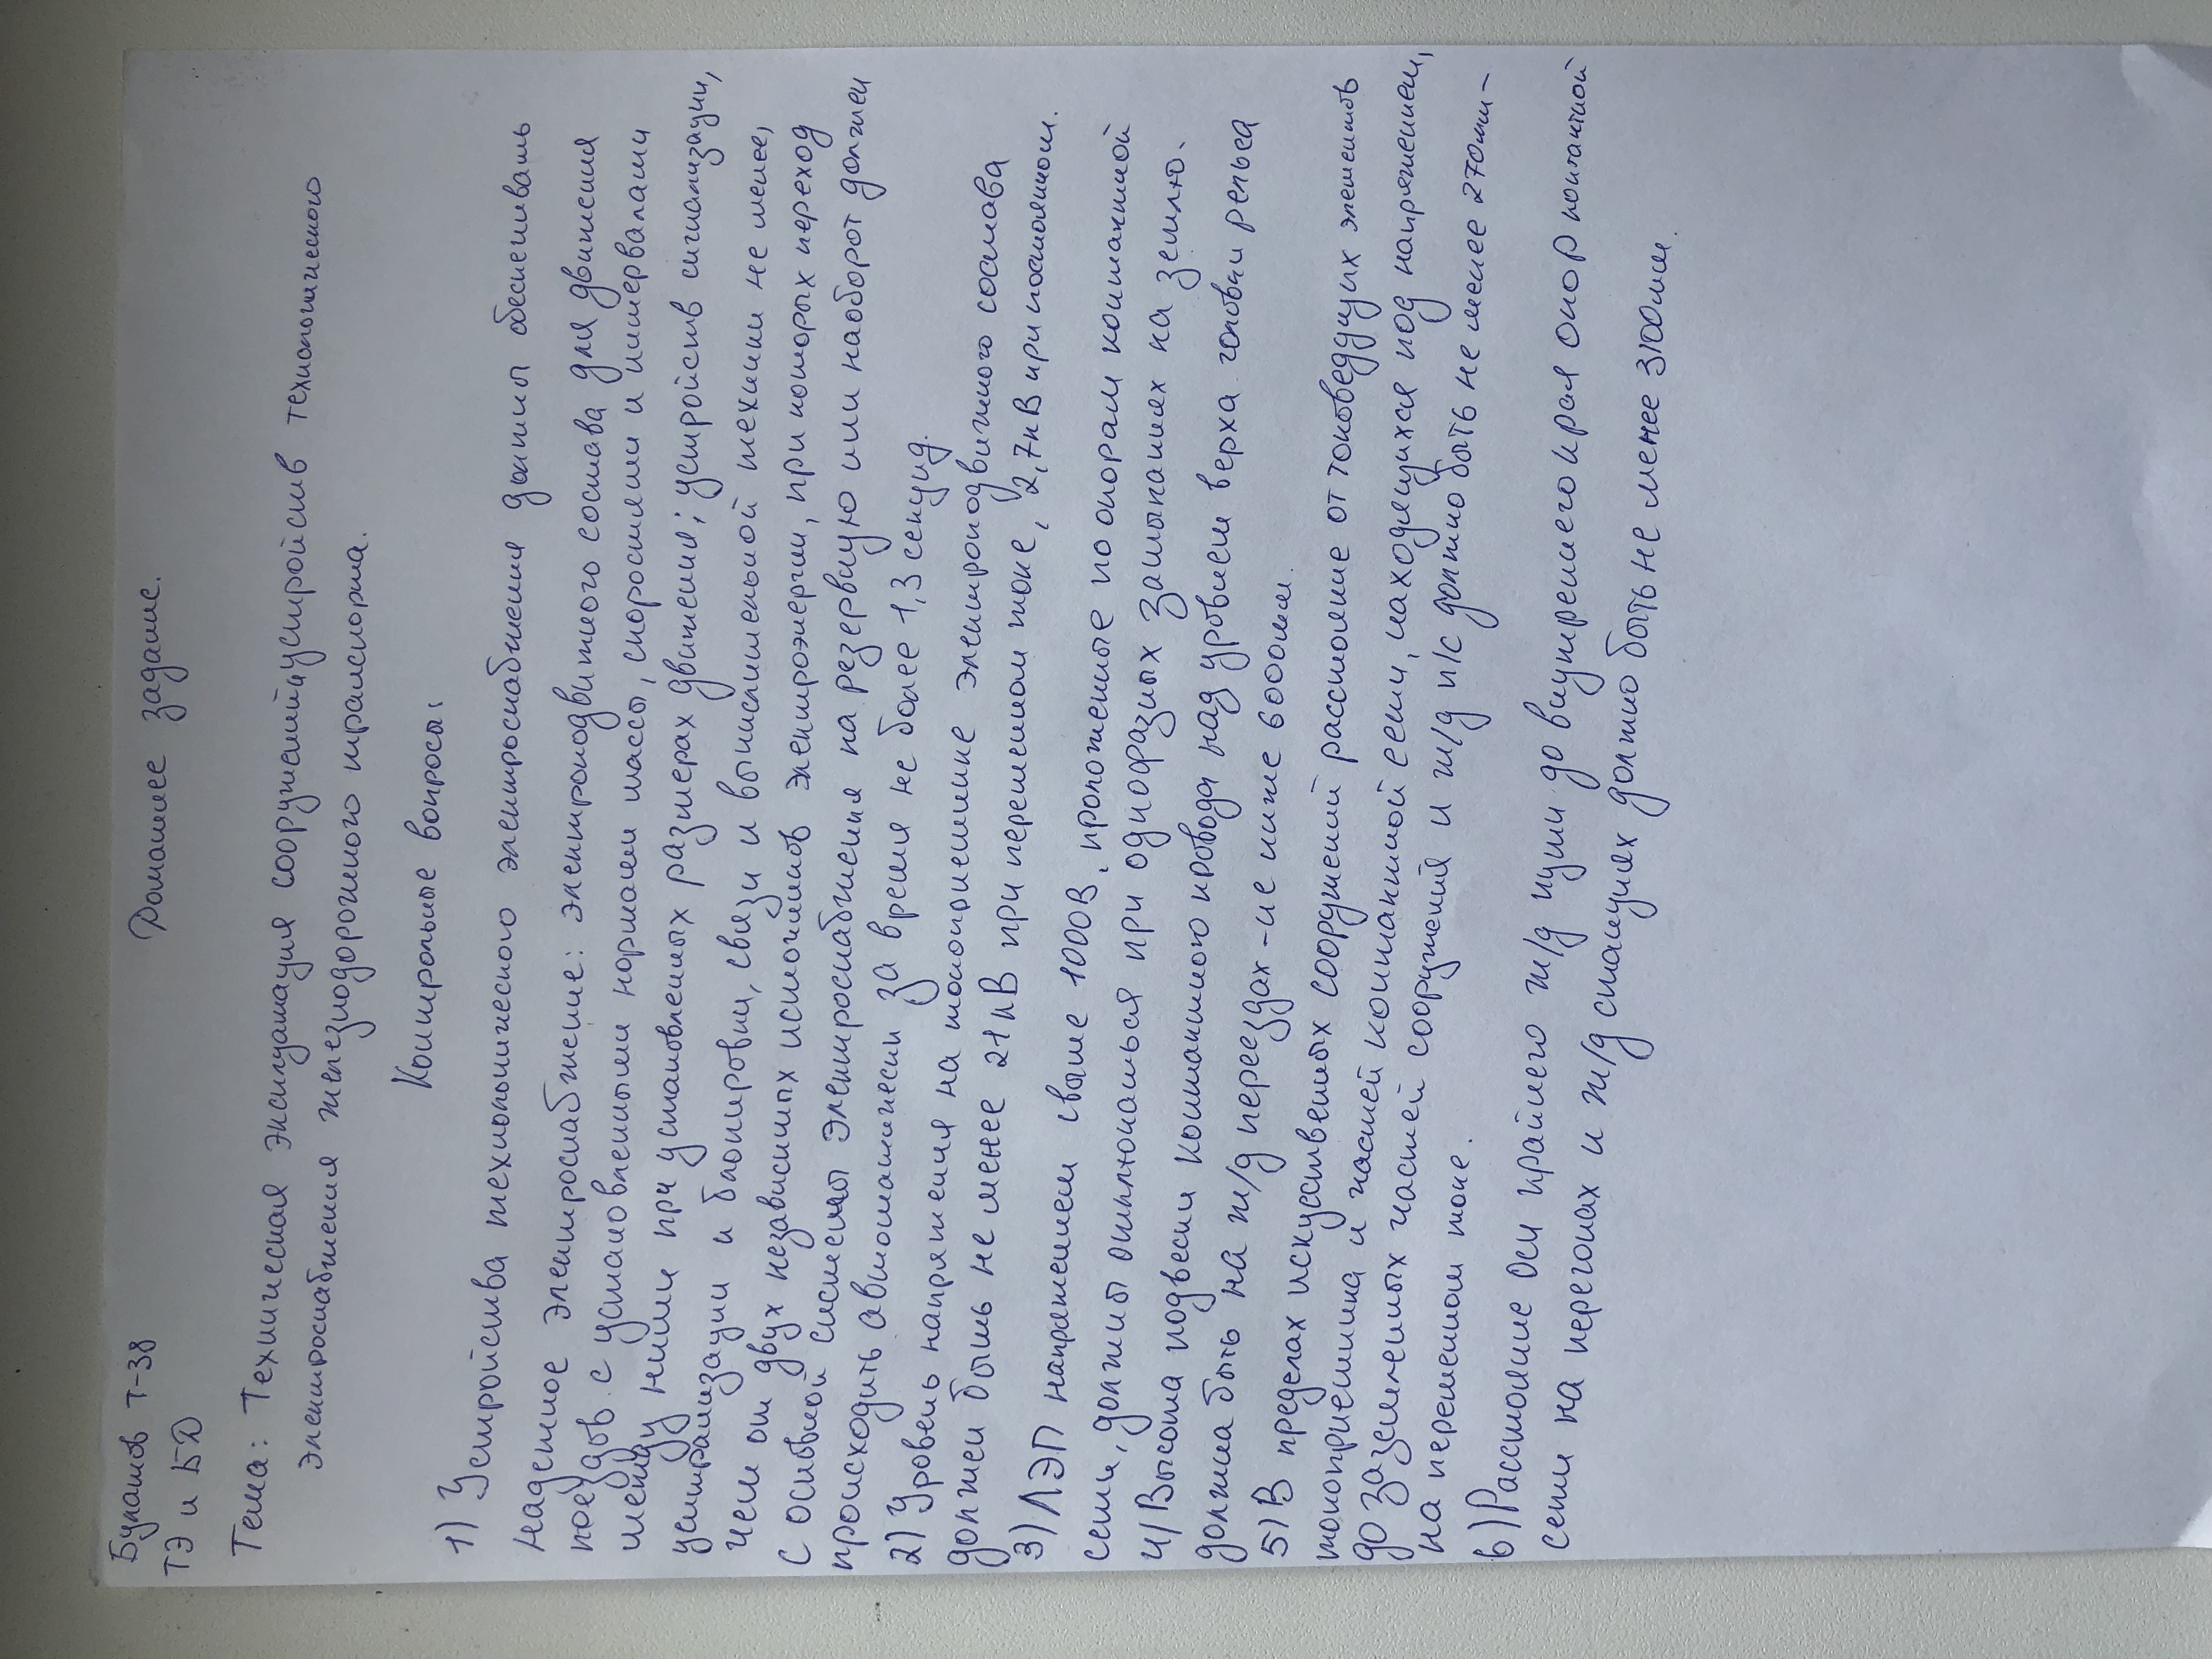 Булатов Т-38
ТЭ и БД
Домашнее задание.
Тема: Техническая эксплуатация сооружений и устройств технологического
электроснабжения железнодорожного транспорта.
Контрольные вопросы:
1) Устройства технологического электроснабжения должны обеспечивать
надежное электроснабжение: электроподвижного состава для движения
поездов с установленными нормами массы, скоростями и интервалами
между ними при установленных размерах движения; устройств сигнализации,
централизации и блокировки, связи и вычислительной техники не менее,
чем от двух независимых источников электроэнергии, при которых переход
с основной системы электроснабжения на резервную или наоборот должен
происходить автоматически за время не более 1,3 секунд.
2) Уровень напряжения на токоприемнике электроподвижного состава
должен быть не менее 21кВ при переменном токе, 2,7кВ при постоянном.
3) ЛЭП напряжением свыше 1000В, проложенные по опорам контактной
сети, должны отключаться при однофазных замыканиях на землю.
4) Высота подвески контактного провода над уровнем верха головки рельса
должна быть на ж/д переездах - не ниже 6000мм.
5) В пределах искусственных сооружений расстояние от токоведущих элементов
токоприемника и частей контактной сети, находящихся под напряжением,
до заземленных частей сооружения и ж/д п/с должно быть не менее 270мм -
на переменном токе.
6) Расстояние оси крайнего ж/д пути до внутреннего края опор контактной
сети на перегонах и ж/д станциях должно быть не менее 3100мм.